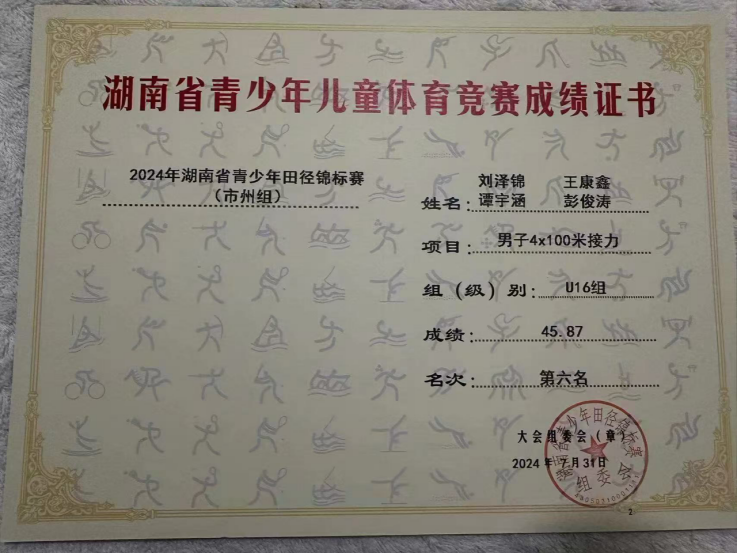 湖南省青少年儿童体育竞赛成绩证书
2024年湖南省青少年田径锦标赛
（市州组）
刘泽锦 王康鑫
姓名：谭宇涵 彭俊涛
项目：男子4x100米接力
组（级）别：U16组
成绩：45.87
名次：第六名
大会组委会（章）
2024年7月31日
湖南省青少年田径锦标赛
组委会
2